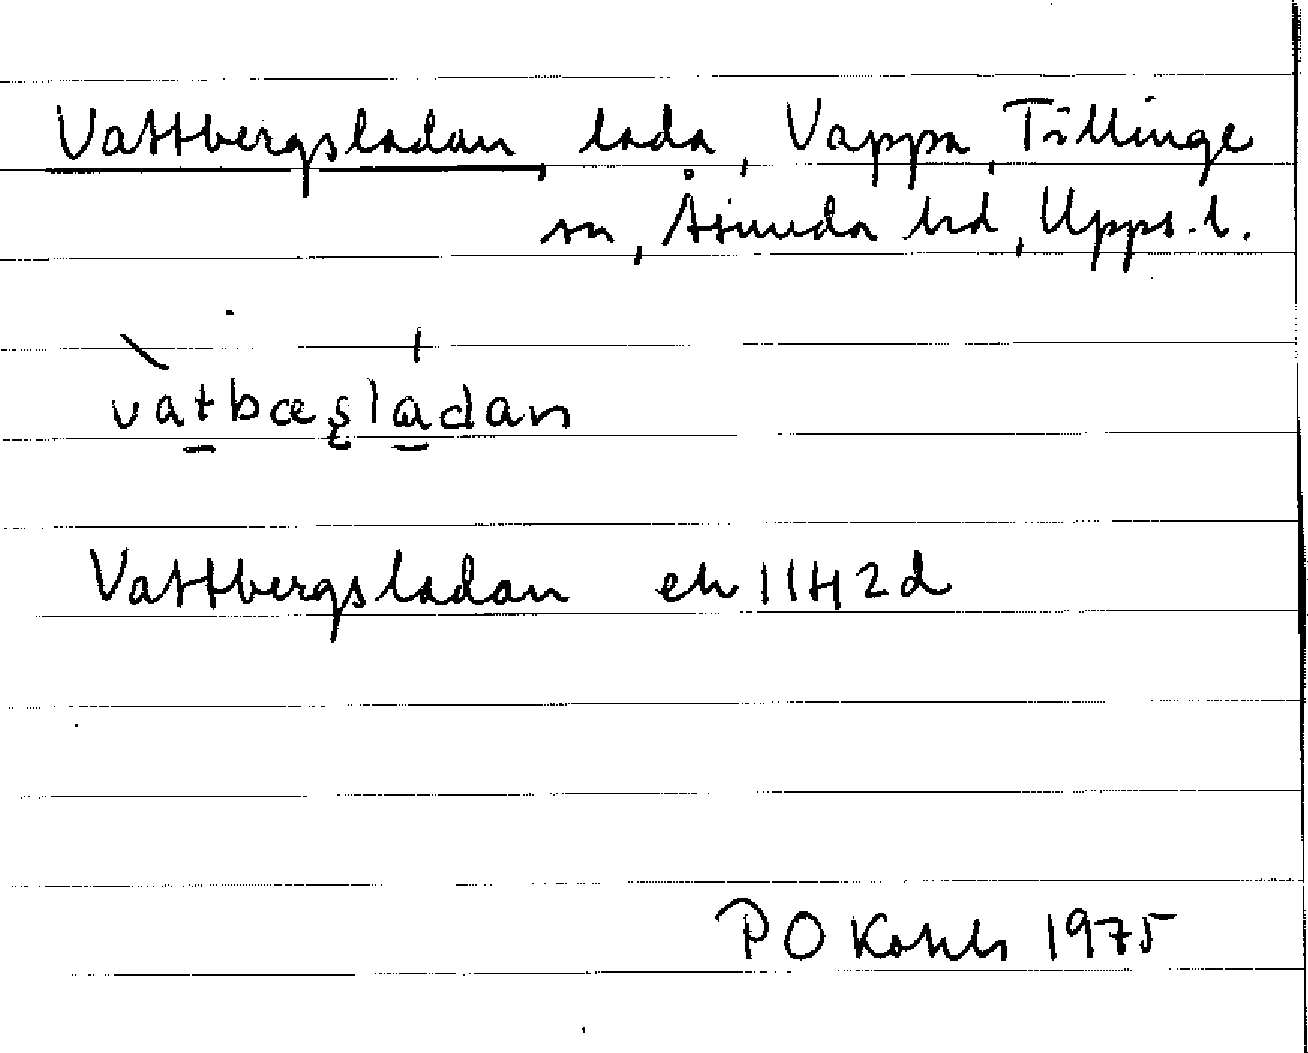 Vattbergsladan, lada, Vappa, Tillinge
sn, Åsunda hd, Upps. l.
vatbæşladan
Vattbergsladan ek 11H2d
P O 1975